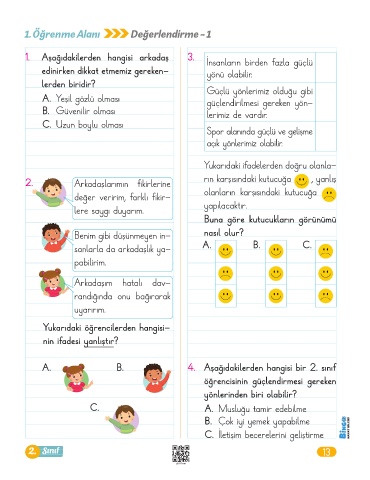 1. Öğrenme Alanı Değerlendirme - 1
1. Aşağıdakilerden hangisi arkadaş
edinirken dikkat etmemiz gereken-
lerden biridir?
A. Yeşil gözlü olması
B. Güvenilir olması
C. Uzun boylu olması
2. Arkadaşlarımın fikirlerine
değer veririm, farklı fikir-
lere saygı duyarım.
Benim gibi düşünmeyen in-
sanlarla da arkadaşlık ya-
pabilirim.
Arkadaşım hatalı dav-
randığında onu bağırarak
uyarırım.
Yukarıdaki öğrencilerden hangisi-
nin ifadesi yanlıştır?
A. B.
C.
3. İnsanların birden fazla güçlü
yönü olabilir.
Güçlü yönlerimiz olduğu gibi
güçlendirilmesi gereken yön-
lerimiz de vardır.
Spor alanında güçlü ve gelişme
açık yönlerimiz olabilir.
Yukarıdaki ifadelerden doğru olanla-
rın karşısındaki kutucuğa , yanlış
olanların karşısındaki kutucuğa
yapılacaktır.
Buna göre kutucukların görünümü
nasıl olur?
A. B. C.
4. Aşağıdakilerden hangisi bir 2. sınıf
öğrencisinin güçlendirmesi gereken
yönlerinden biri olabilir?
A. Musluğu tamir edebilme
B. Çok iyi yemek yapabilme
C. İletişim becerilerini geliştirme
2. Sınıf
13